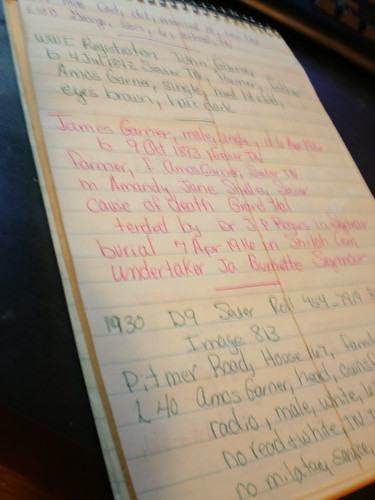 George, son, 6,
WWI Registration, John Garner,
b 4 Jul 1872 Sevier TN, Farmer, father
Amos Garner, single,
eyes brown, hair dark
James Garner, male, single, d 6 Apr 1916
b 9 Oct 1873, Sevier TN
Farmer, f Amos Garner, Sevier TN
m Amanda Jane Shelley, Sevier
cause of death
tended by Dr J P Rogers in Seymour
burial 7 Apr 1916 in Shiloh Cem
undertaker Ja Burnette Seymour
1930 D9 Sever Roll
Image 813
Pitmer Road, House 67, family
L 40 Amos Garner, head,
radio, male, white,
no read + write, TN
no military service,